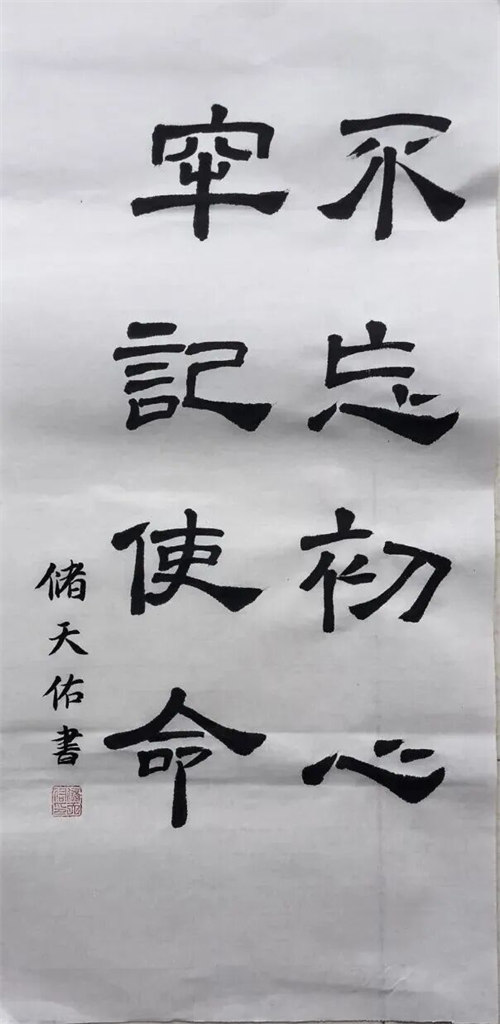 不忘初心
牢記使命
儲天佑書